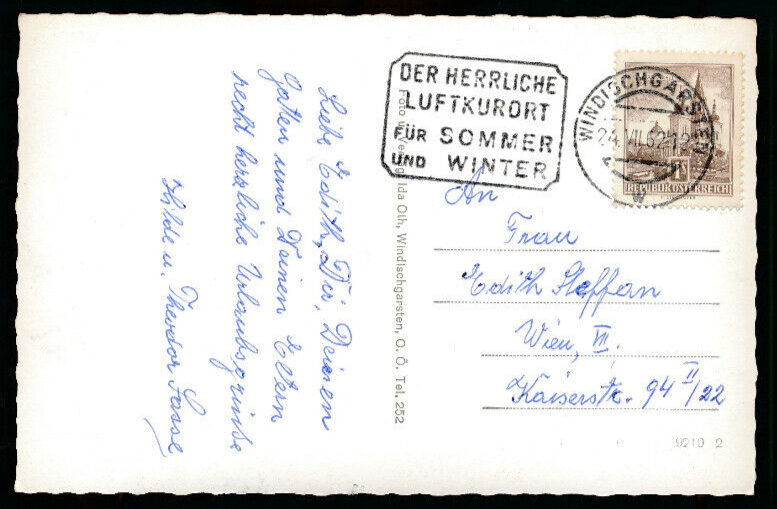 Liebe Edith, Dir, Deinen
Gatten und Deinen Eltern
recht herzliche Urlaubsgrüsse
Hilde u. Theodor Sasse
Foto u. Verlag Ida Oth, Windischgarsten, O. Ö. Tel. 252
DER HERRLICHE
LUFTKURORT
FÜR SOMMER
UND WINTER
WINDISCHGARSTEN
24.VII.62-12
REPUBLIK ÖSTERREICH
An
Frau
Edith Steffan
Wien, VII.
Kaiserstr. 94 II/22
9219 2